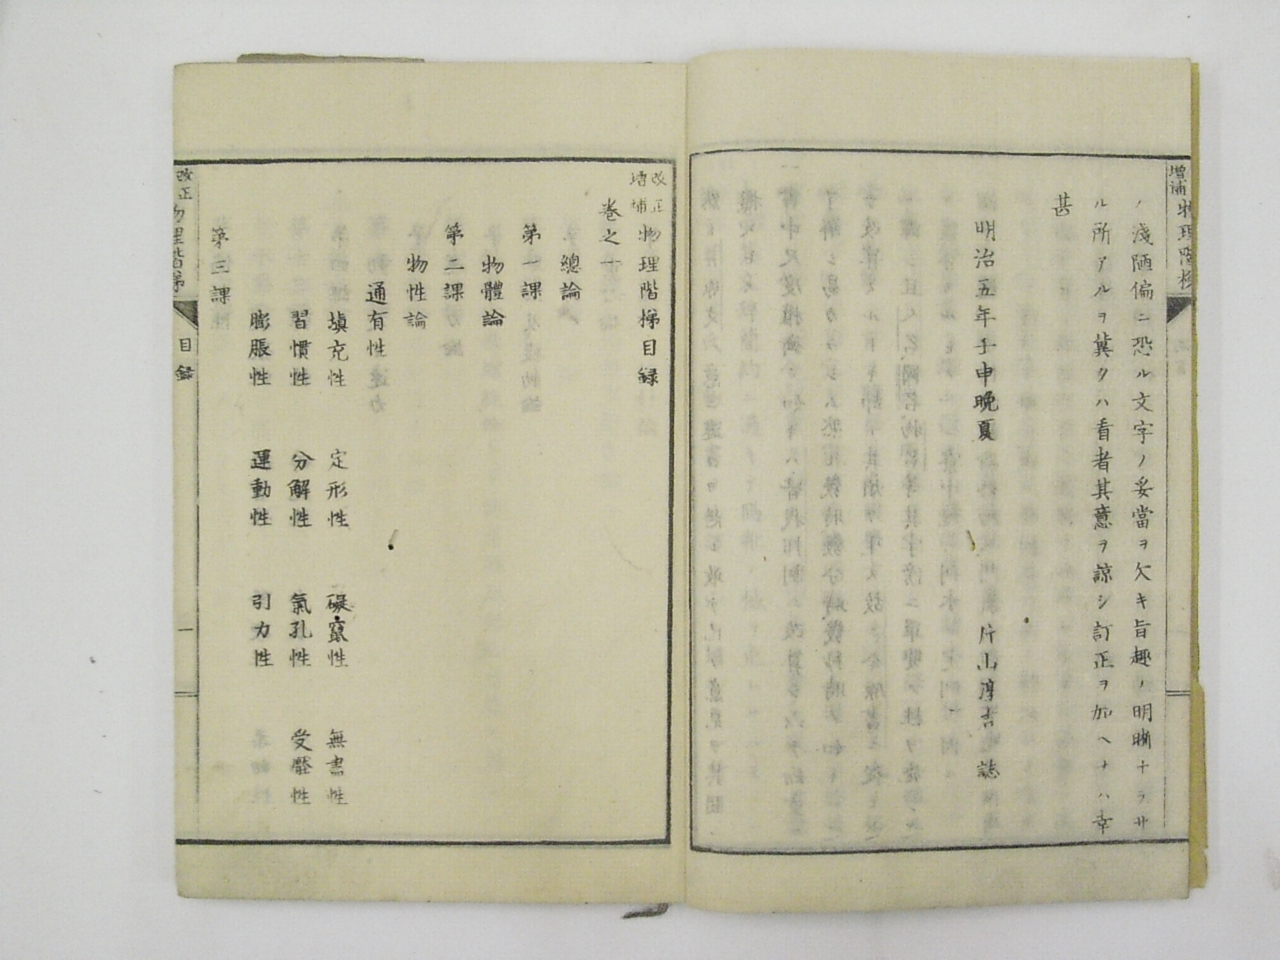 増補
物理階梯
ノ淺陋偏ニ恐ル文字ノ妥當ヲ欠キ旨趣ノ明晰ナラサ
ル所アルヲ冀クハ看者其意ヲ諒シ訂正ヲ加ヘナハ幸
甚
明治五年壬申晩夏 片山淳吉 誌
改正
増補
物理階梯目録
卷之一
總論
第一課
物體論
第二課
物性論
通有性
填充性 定形性 礙竄性 無盡性
習慣性 分解性 氣孔性 受壓性
膨脹性 運動性 引力性
第三課
改正
物理階梯
目録
一